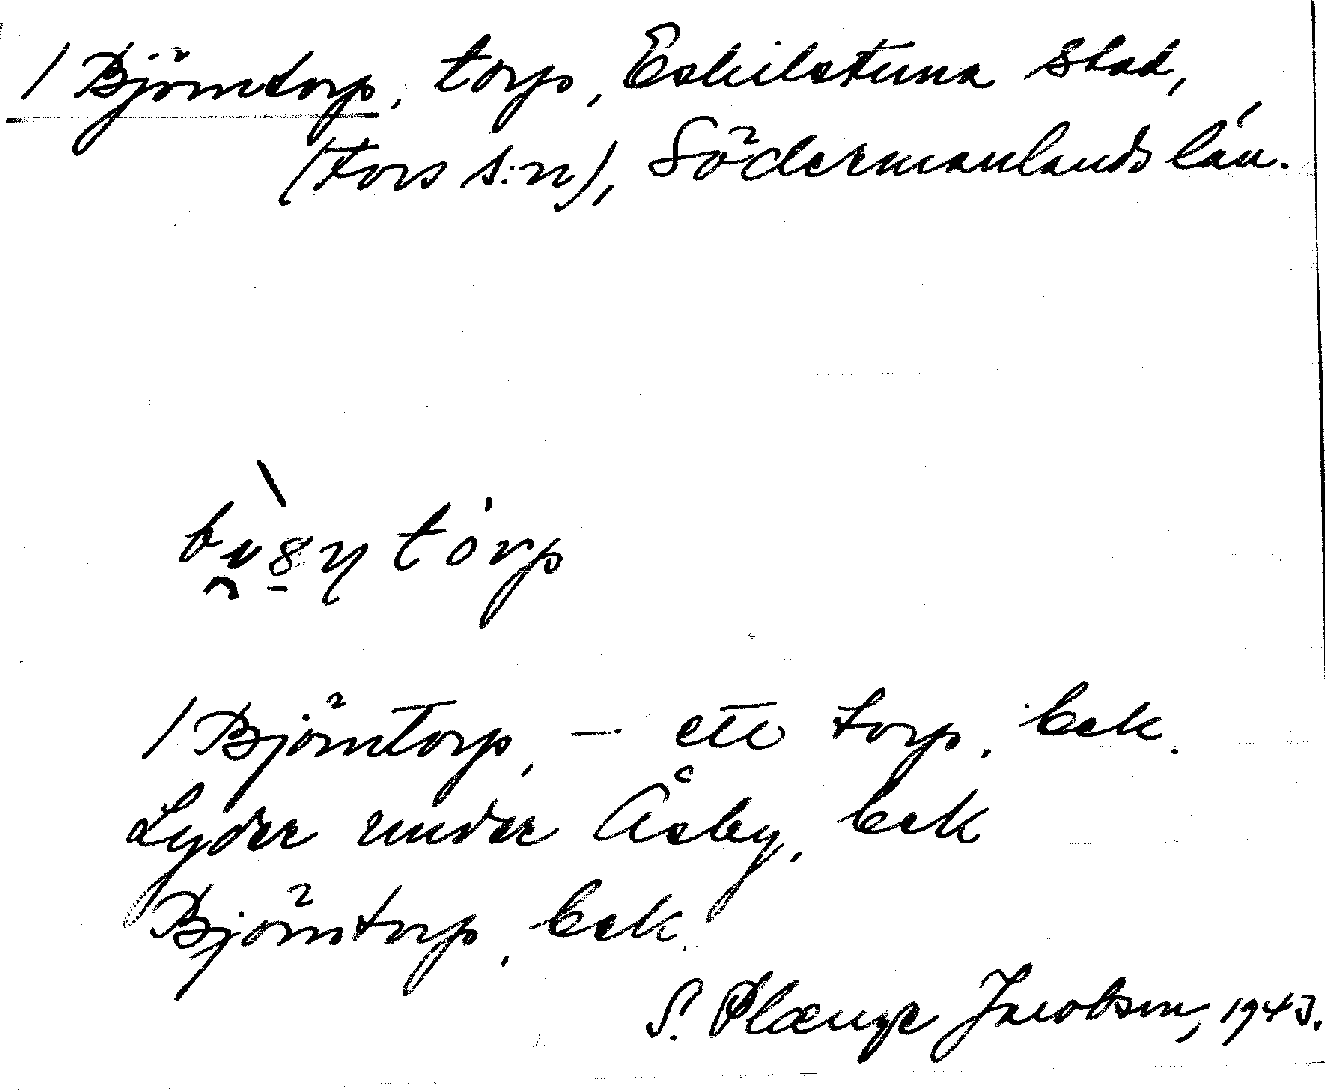 / Björntorp, torp, Eskilstuna stad,
(Fors s:n), Södermanlands län.
/ Björntorp, – ett torp, bek.
Lyder under Åsby, bek
Björntorp, bek.
S. Plænge Jacobsen, 1943.